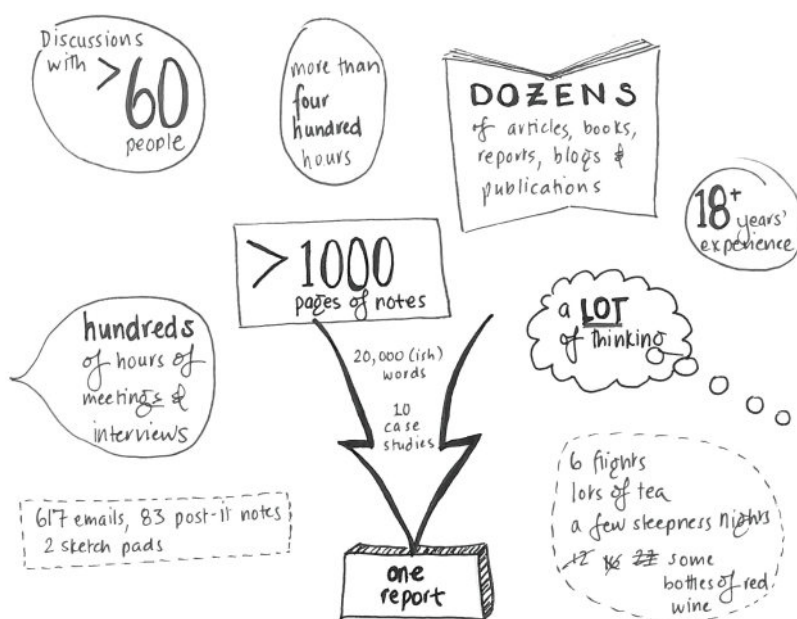 Discussions
with >60
people
more than
four
hundred
hours
DOZENS
of articles, books,
reports, blogs &
publications
18+ years'
experience
>1000
pages of notes
hundreds
of hours of
meetings &
interviews
20,000 (ish)
words
10
case
studies
a LOT
of thinking
617 emails, 83 post-it notes
2 sketch pads
6 flights
lots of tea
a few sleepness nights
12 16 22 some
bottles of red
wine
one
report